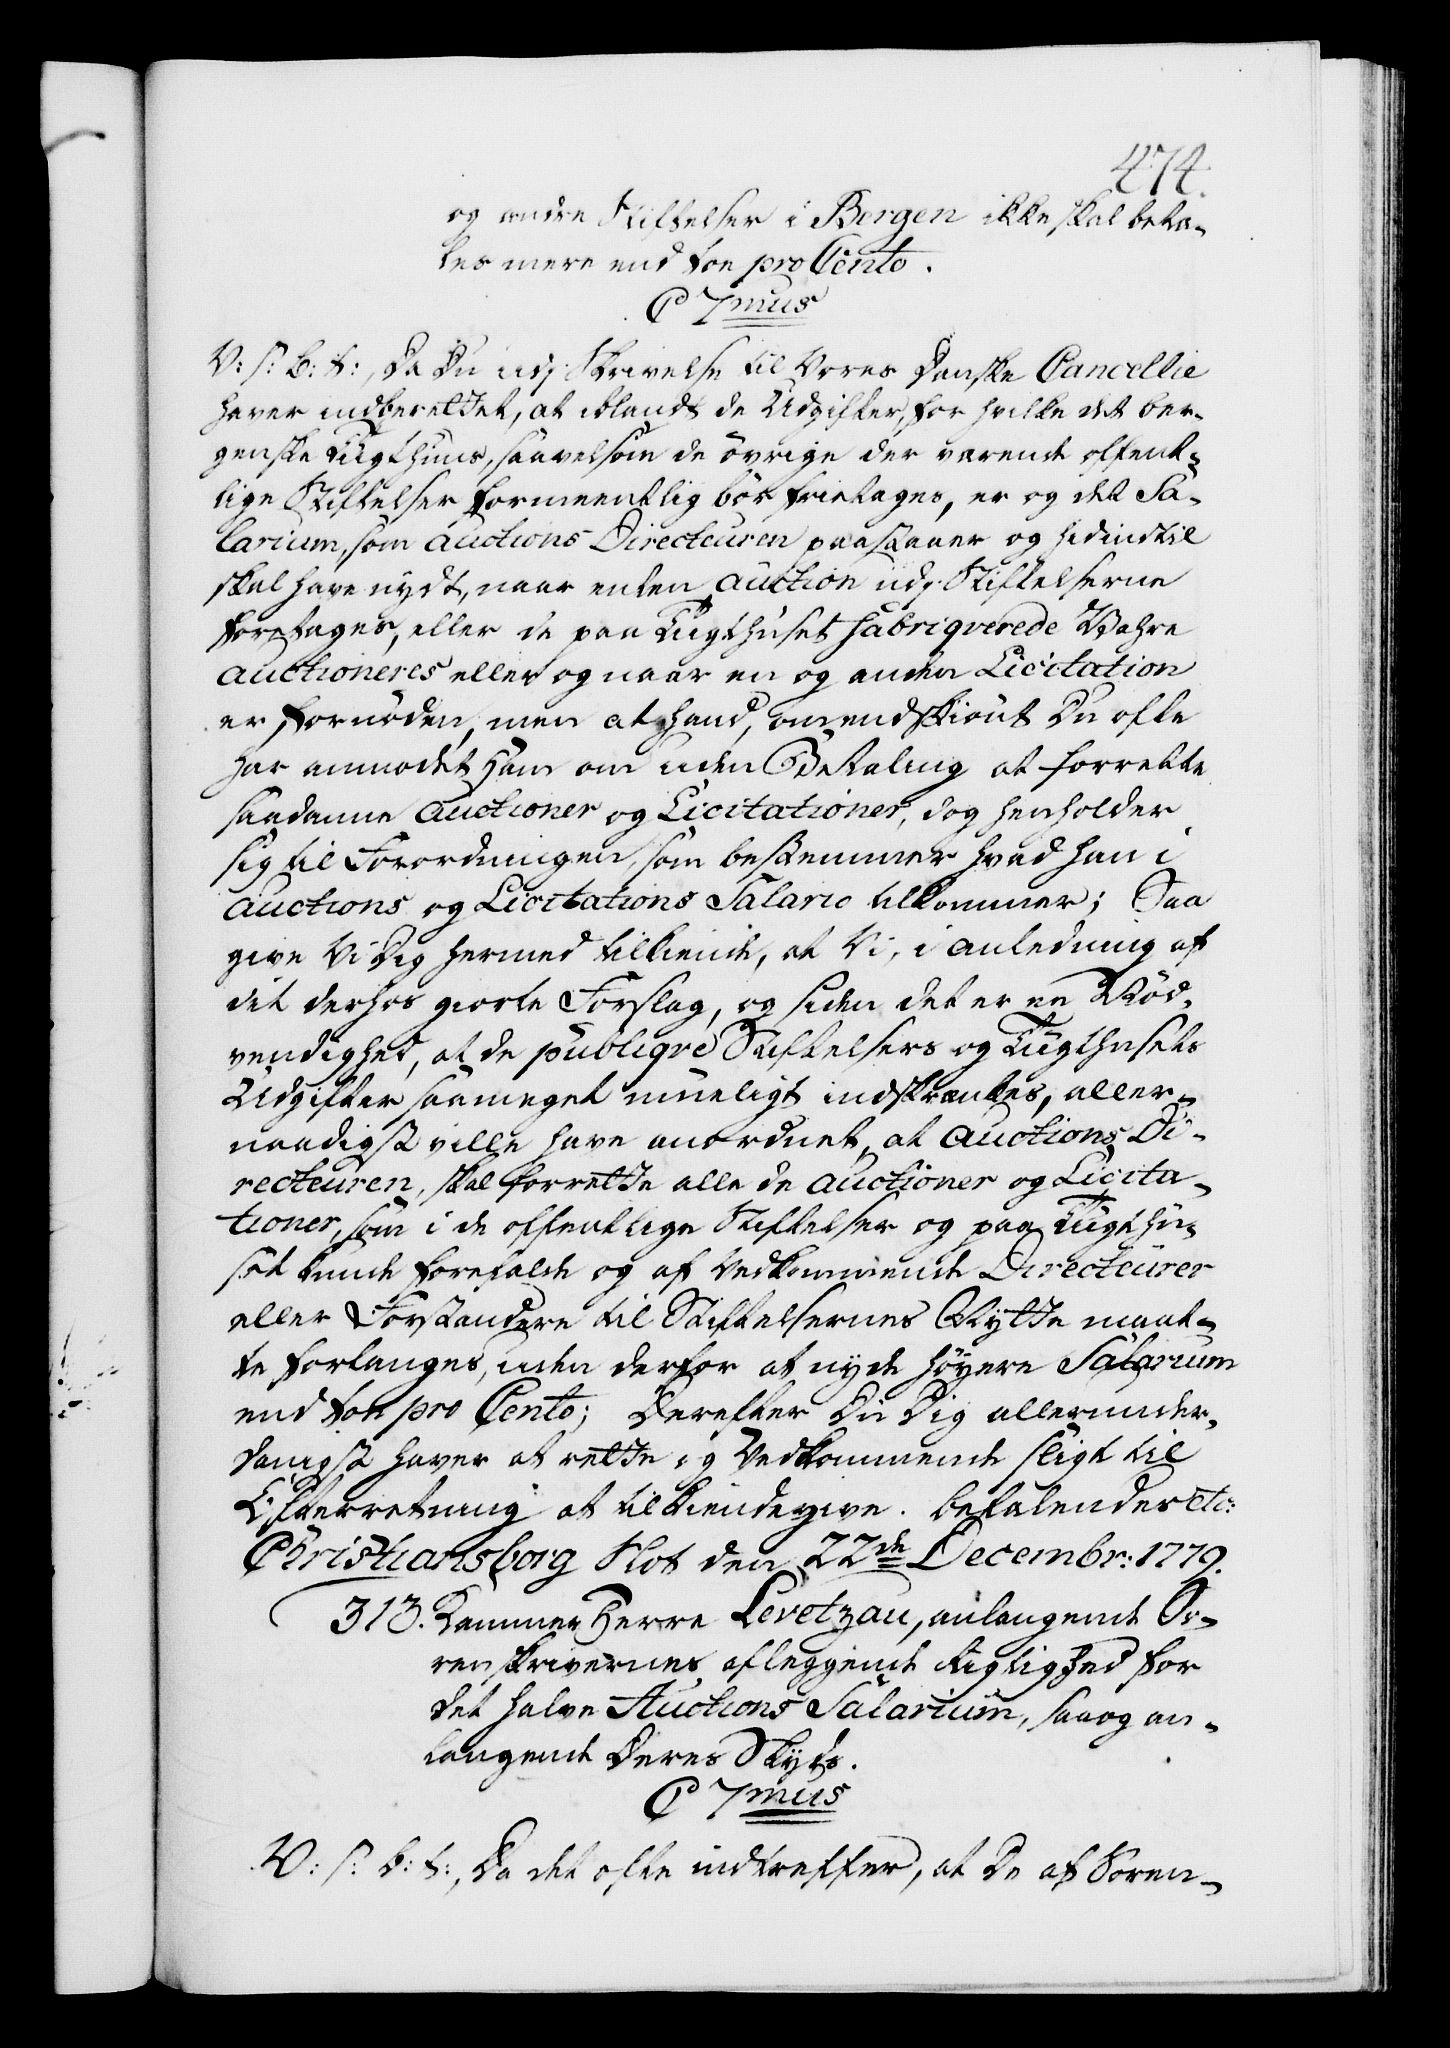 474.
og andre Stiftelser i Bergen ikke skal beta-
les mere end toe pro Cento.
C 7mus
V: s: b: t:, Da Du udj Skrivelse til Vores Danske Cancellie
haver indberettet, at iblandt de Udgifter, for hvilke det ber-
genske Tugthuus, saavelsom de övrige der værende offent-
lige Stiftelser formeentlig bör fritages, er og det Sa-
larium, som Auctions Directeuren paastaaer og hidindtil
skal have nydt, naar enten Auction udj Stiftelserne
foretages, eller de paa Tugthuset fabriqverede Wahre
auctioneres eller og naar en og anden Licitation
er fornöden, men at hand, omendskiönt Du ofte
har anmodet Ham om uden Betaling at forrette
saadanne Auctioner og Licitationer, dog henholder
sig til Forordningen, som bestemmer hvad han i
Auctions og Licitations Salario tilkommer; Saa
give Vi Dig hermed tilkiende, at Vi, i anledning af
dit derhos giorte Forslag, og siden det er en Nöd-
vendighed, at de publiqve Stiftelsers og Tugthusets
Udgifter saameget mueligt indskrænkes, aller-
naadigst ville have anordnet, at Auctions Di-
recteuren, skal forrette alle de Auctioner og Licita-
tioner, som i de offentlige Stiftelser og paa Tugthu-
set kunde forefalde og af Vedkommende Directeurer
eller Forstandere til Stiftelsernes Nytte maat-
te forlanges, uden derfor at nyde höyere Salarium
end toe pro Cento; Derefter Du Dig allerunder-
danigst haver at rette og Vedkommende sligt til
Efterretning at tilkiendegive. befalendes etc:
Christiansborg Slot den 22de Decembr: 1779.
313. Kammer Herre Levetzau, anlangende So-
renskrivernes aflæggende Rigtighed for
det halve Auctions Salarium, saa og an-
langende Deres Skyds.
C 7mus
V: s: b: t:, Da det ofte indtreffer, at De af Soren-